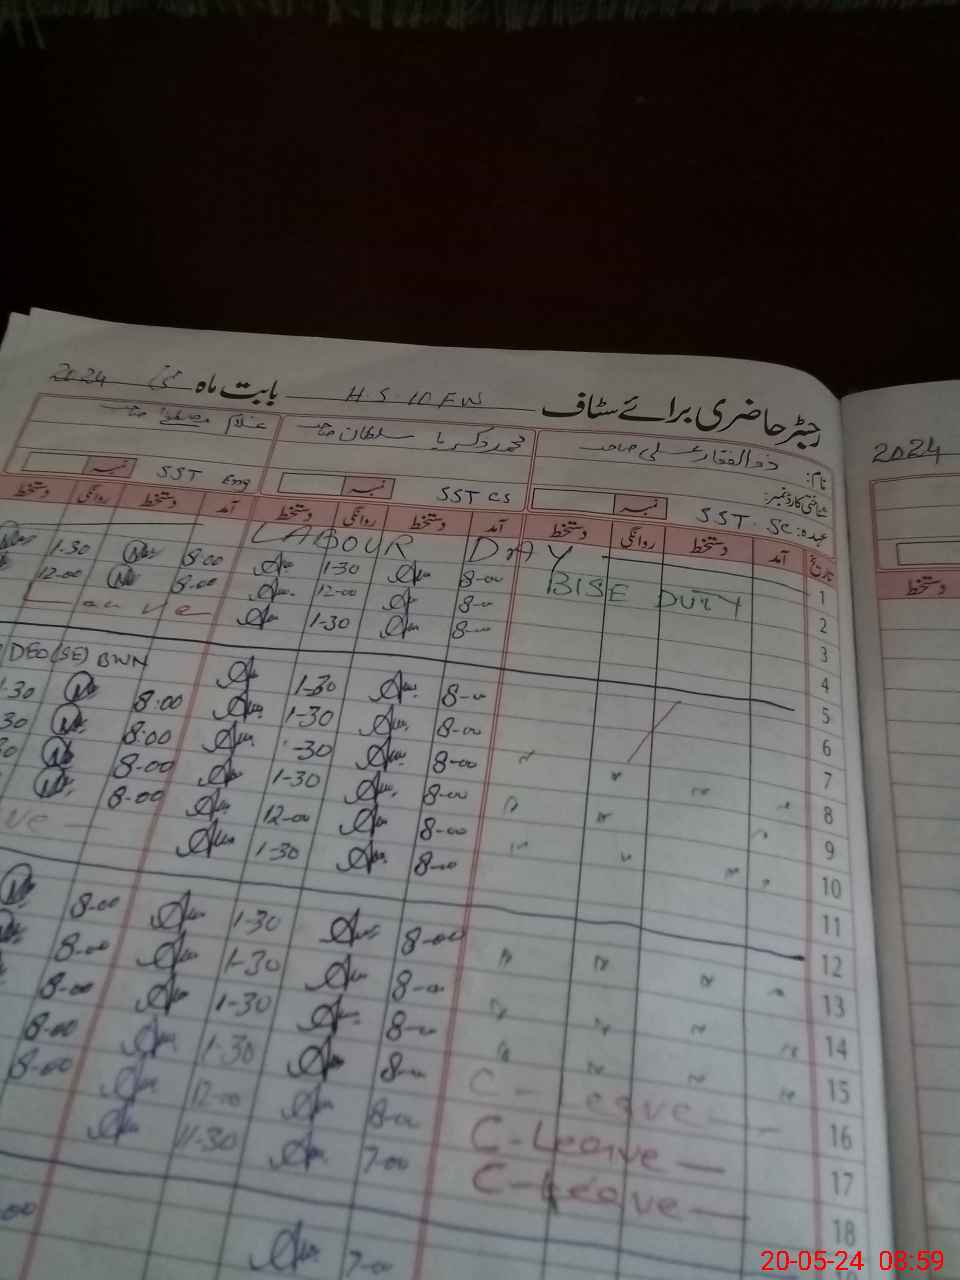 رجسٹر حاضری برائے سٹاف H.S. 10 FW بابت ماہ مئی 2024
2024
نام: ذوالفقار علی صاحب محمد زکریا سلطان صاحب غلام مصطفیٰ صاحب
شناختی کارڈ نمبر:
عہدہ: SST. Sc نمبر SST CS نمبر SST Eng نمبر
تاریخ آمد دستخط روانگی دستخط آمد دستخط روانگی دستخط آمد دستخط روانگی دستخط
دستخط
LABOUR DAY
1
BISE DUTY
2 8-00 1-30 8:00 1-30
3 8-00 12-00 8-00 12-00
4 8-00 1-30 Leave
5
6 8-00 1-30 DEO (SE) BWN
7 " " " " 8-00 1-30 8:00 1-30
8 " " " " 8-00 1-30 8:00 30
9 " " " " 8-00 1-30 8-00 30
10 8-00 12-00 8-00
11 8-00 1-30 ve
12
13 " " " " 8-00 1-30 8-00
14 " " " " 8-00 1-30 8-00
15 " " " " 8-00 1-30 8-00
16 C-Leave 8-00 1-30 8-00
17 C-Leave 8-00 12-00 8-00
18 C-Leave 7-00 11-30
7-00 00
20-05-24 08:59